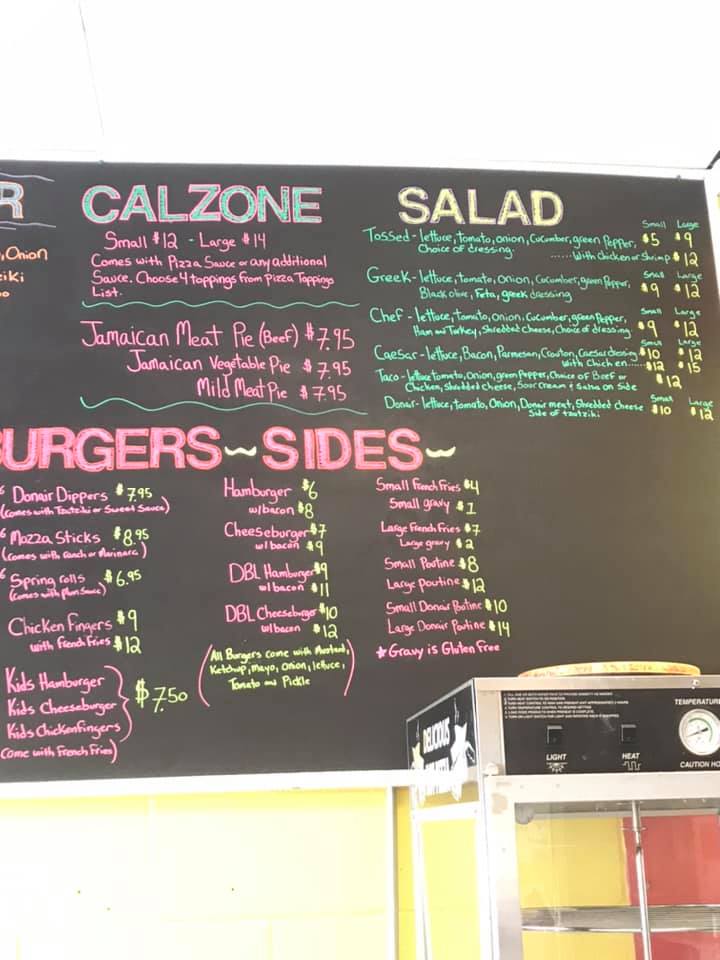 R
Onion
ziki
CALZONE
Small $12 - Large $14
Comes with Pizza Sauce or any additional
Sauce. Choose 4 toppings from Pizza Toppings
List.
Jamaican Meat Pie (Beef) $7.95
Jamaican Vegetable Pie $7.95
Mild Meat Pie $7.95
SALAD
Small Large
Tossed - lettuce, tomato, onion, Cucumber, green Pepper, $5 $9
Choice of dressing. ......with chicken or Shrimp $12
Small Large
Greek - lettuce, tomato, Onion, Cucumber, green Pepper, $9 $12
Black olive, Feta, greek dressing
Small Large
Chef - lettuce, tomato, Onion, Cucumber, green Pepper, $9 $12
Ham and Turkey, Shredded cheese, Choice of dressing
Small Large
Caesar - lettuce, Bacon, Parmesan, Crouton, Caesar dressing $10 $12
with Chicken......$12 $15
Taco - lettuce, tomato, Onion, green Pepper, Choice of Beef or
Chicken, shredded cheese, Sour Cream & Salsa on Side $12
Small Large
Donair - lettuce, tomato, Onion, Donair meat, Shredded cheese $10 $12
Side of tzatziki
BURGERS ~ SIDES ~
Donair Dippers $7.95
(Comes with Tzatziki or Sweet Sauce)
Mozza Sticks $8.95
(Comes with Ranch or Marinara)
Spring rolls $6.95
(Comes with Plum Sauce)
Chicken Fingers $9
with French Fries $12
Kids Hamburger
Kids Cheeseburger
Kids Chickenfingers
$7.50
(Come with French Fries)
Hamburger $6
w/bacon $8
Cheeseburger $7
w/ bacon $9
DBL Hamburger $9
w/ bacon $11
DBL Cheeseburger $10
w/ bacon $12
(All Burgers come with Mustard,
Ketchup, mayo, Onion, lettuce,
Tomato and Pickle)
Small French Fries $4
Small gravy $1
Large French Fries $7
Large gravy $2
Small Poutine $8
Large Poutine $12
Small Donair Poutine $10
Large Donair Poutine $14
* Gravy is Gluten Free
DELICIOUS
LIGHT
HEAT
TEMPERATURE
CAUTION HO